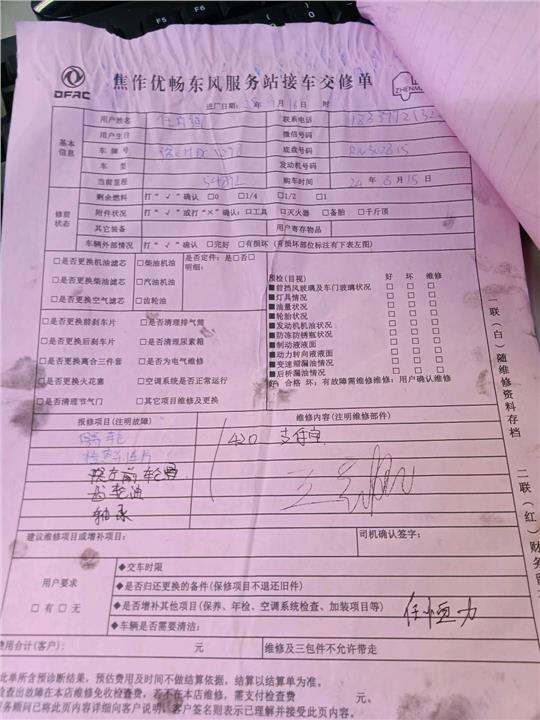 F5
F6
DFAC
焦作优畅东风服务站接车交修单
进厂日期： 年 月 日 时
基本信息
用户姓名
联系电话
用户生日
微信号码
车牌号
底盘号码
车型
发动机号码
当前里程
购车时间 24年6月15日
修前状态
剩余燃料 打"√"确认 □0 □1/4 □1/2 □1
附件状况 打"√"或打"×"确认：□工具 □灭火器 □备胎 □千斤顶
其它装备 用户寄存物品
车辆外部情况 打"√"确认 □完好 □有损坏（有损坏部位标注有下表左图）
□是否更换机油滤芯 □柴油机油 是否定件：是□否□
明细：
□是否更换柴油滤芯 □汽油机油
□是否更换空气滤芯 □齿轮油
预检(目视) 好 坏 维修
■前挡风玻璃及车门玻璃状况 □ □ □
■灯具情况 □ □ □
■油量状况 □ □ □
■轮胎状况 □ □ □
■发动机机油状况 □ □ □
■防冻防锈瓶状况 □ □ □
■制动液液面 □ □ □
■动力转向液液面 □ □ □
■变速箱漏油情况 □ □ □
■后桥漏油情况 □ □ □
好：合格 坏：有故障需维修维修：用户确认维修
□是否更换前刹车片 □是否清理排气筒
□是否更换后刹车片 □是否清理尿素箱
□是否更换离合三件套 □是否为电气维修
□是否更换火花塞 □空调系统是否正常运行
□是否清理节气门 □其它项目维修及更换
报修项目(注明故障) 维修内容(注明维修部件)
420 支付宝
轴承
建议维修项目或增补项目： 司机确认签字：
用户要求
□有□无
◆交车时限
◆是否归还更换的备件(保修项目不退还旧件)
◆是否增补其他项目(保养、年检、空调系统检查、加装项目等)
◆车辆是否需要清洁：
费用合计(客户)： 元 维修及三包件不允许带走
此单所含预诊断结果，预估费用及时间不做结算依据，结算以结算单为准。
检查出故障在本店维修免收检查费，若不在本店维修，需支付检查费 元。
务顾问已将此页内容详细向客户说明，客户签名则表示已理解并接受此页内容。
一联(白)随维修资料存档
二联(红)财务